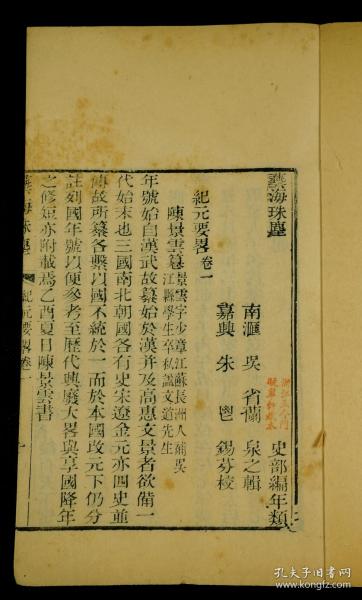 藝海珠塵
史部編年類
南滙 吳省蘭 泉之輯
嘉興 朱鬯 錫芬校
紀元要畧卷一
陳景雲簒 景雲字少章江蘇長洲人補吳
江縣學生卒私諡文道先生
年號始自漢武故簒始於漢并及高惠文景者欲備一
代始末也三國南北朝國各有史宋遼金元亦四史並
傳故所簒各繫以國不統於一而於本國改元下仍分
註列國年號以便參考至歷代興廢大畧與享國降年
之修短亦附載焉乙酉夏日陳景雲書
藝海珠塵 紀元要畧卷一 一
孔夫子旧书网